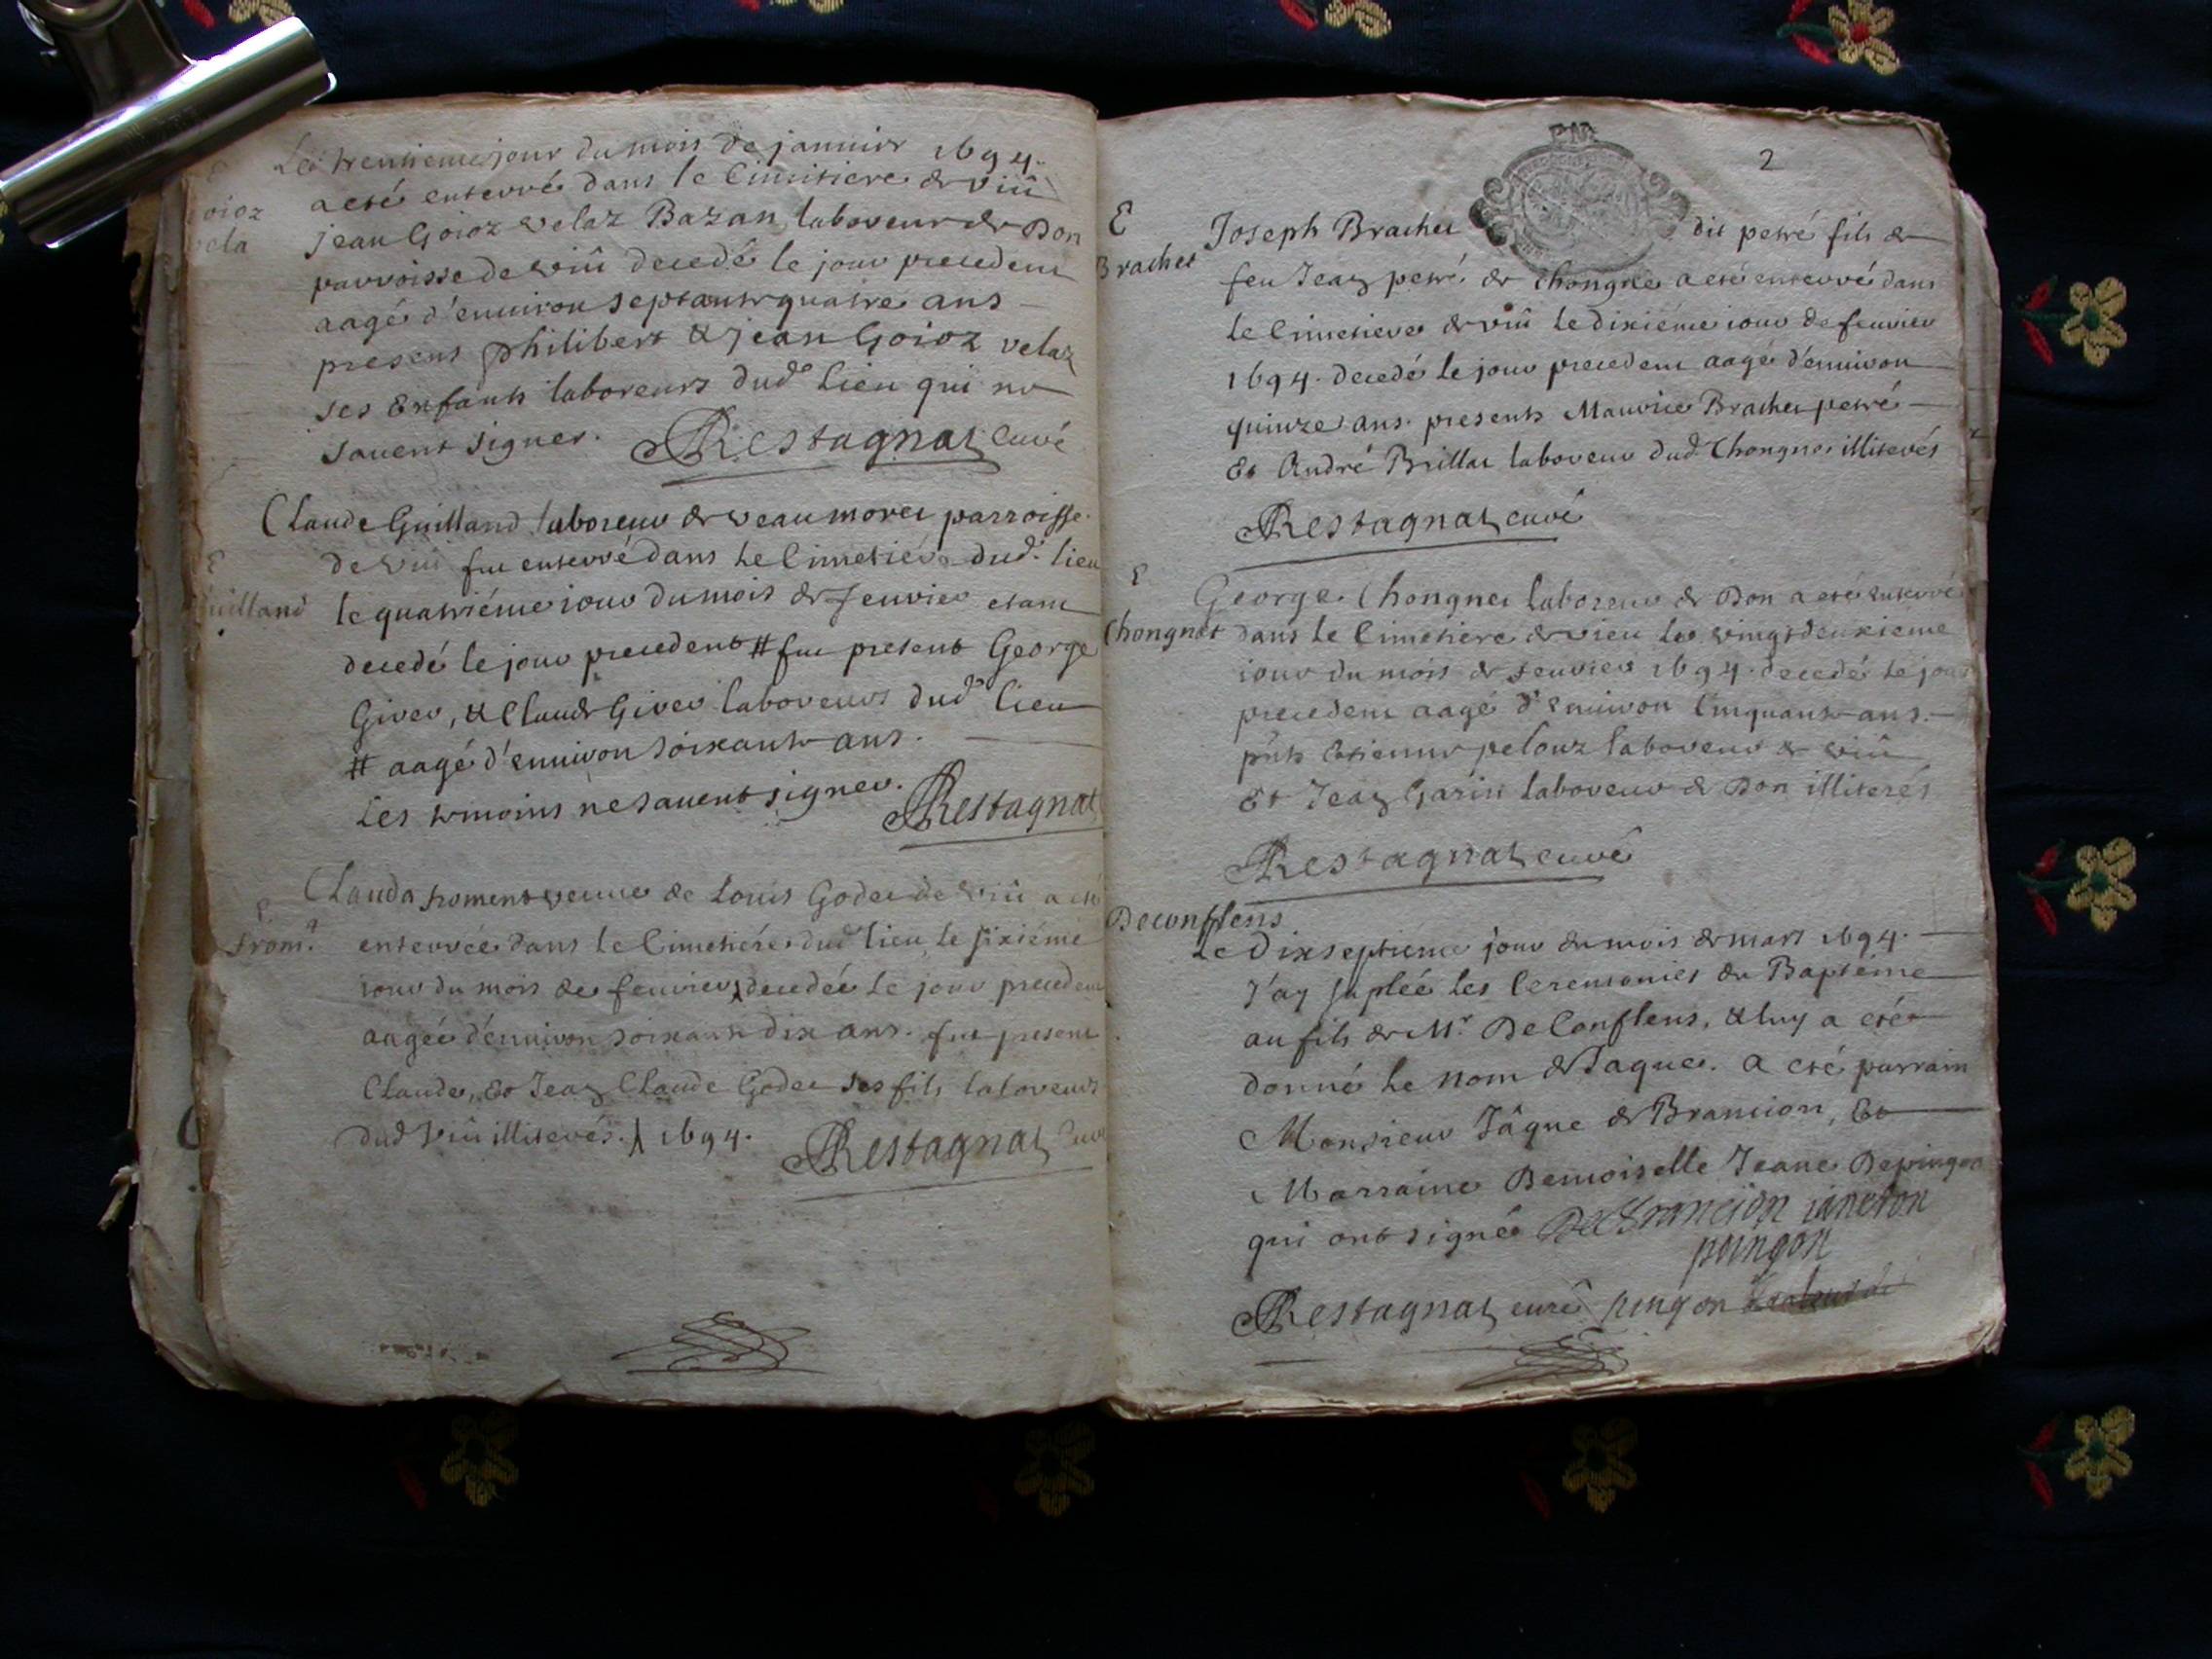 E
Goioz
vela
Le trentiemejour du mois de januier 1694.
a eté enterré dans le Cimitiere de viû
jean Goioz velaz Bazan, laboreur de Don
parroisse de viû decedé le jour precedent
aagé d'enuiron septante quatre ans
presens philibert & jean Goioz velaz
ses enfants laboreurs dud. Lieu qui ne
sauent signer. Restagnat curé
E
guilland
Claude Guilland laboreur de veaumorel parroisse
de viû fut enterré dans le Cimetiére dud. lieu
le quatriéme iour du mois de feurier etant
decedé le jour precedent # fut present George
Girer, & Claude Girer laboreurs dud. lieu
# aagé d'enuiron soixante ans.
Les temoins ne sauent signer. Restagnat
E
from.t
Clauda froment veuue de Louis Godet de viû a eté
enterrée dans le Cimetiére dud. lieu le sixiéme
iour du mois de feurier, decedée le jour precedent
aagée d'enuiron soixante dix ans. fut present
Claude, et Jean Claude Godet ses fils laboreurs
dud. viû illiterés. 1694. Restagnat Curé
2
E
Brachet
Joseph Brachet dit petré fils de
feu Jean petré, de Chongne a eté enterré dans
le Cimetiere de viû le dixiéme iour de feurier
1694. decedé le jour precedent aagé d'enuiron
quinze ans. presents Maurice Brachet petré
et André Brillat laboreur dud. Chongnes illiterés
Restagnat curé
E
Chongnet
George Chongnet laboreur de Don a eté enterré
dans le Cimetiere de vieu le vingtdeuxieme
iour du mois de feurier 1694. decedé le jour
precedent aagé d'enuiron Cinquante ans.
pnts Etienne pelouz laboreur de viû
Et Jean Garin laboreur de Don illiterés
Restagnat curé
Deconflens
Le Dixseptiéme jour du mois de mars 1694.
J'ay suplée les Ceremonies du Baptéme
au fils de Mr. De Conflens, & luy a eté
donné le nom de Jaques. a eté parrain
Monsieur Jâque de Brancion, Et
Marraine Demoiselle Jeane Depingon
qui ont signé De Brancion ianeton
pingon
Restagnat curé pingon